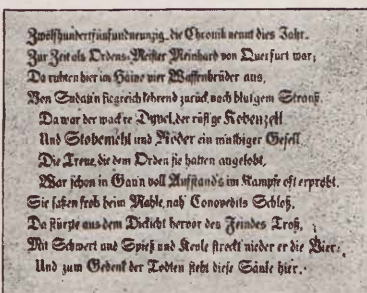 Zwölfhundertfünfundneunzig, die Chronik nennt dies Jahr.
Zur Zeit als Ordens-Meister Meinhard von Querfurt war,
Da ruhten hier im Haine vier Waffenbrüder aus,
Von Sudau'n siegreich kehrend zurück nach blut'gem Strauß.
Da war der wack're Dyvel, der rüst'ge Kobenzell
Und Stobemehl und Röder ein muthiger Gesell
Die Treue, die dem Orden sie hatten angelobt,
War schon in Gau'n voll Aufstands im Kampfe oft erprobt.
Sie saßen froh beim Mahle, nah' Conovedits Schloß,
Da stürzte aus dem Dickicht hervor des Feindes Troß,
Mit Schwert und Spieß und Keule streckt nieder er die Vier:
Und zum Gedenk der Todten steht diese Säule hier.